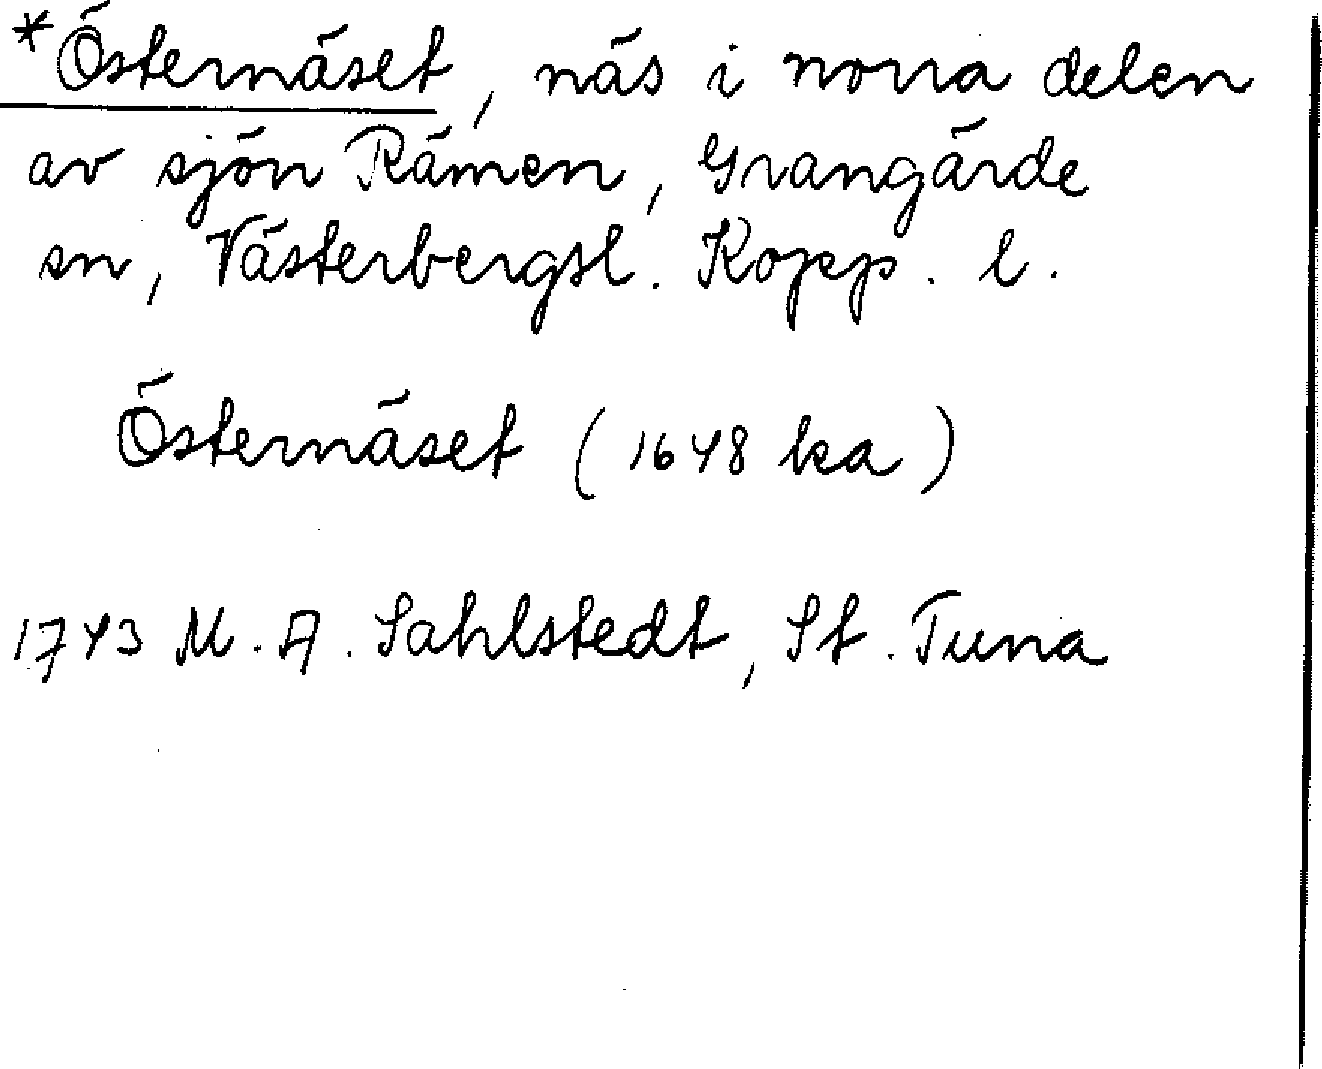 *Östernäset, näs i norra delen
av sjön Rämen, Grangärde
sn, Västerbergsl. Kopp. l.
Östernäset (1648 ka)
1743 M. A. Sahlstedt, St. Tuna